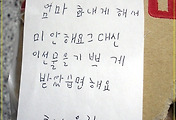 엄마 화내게 해서
미안해요그대신
이선물을기쁘게
받았씀면해요